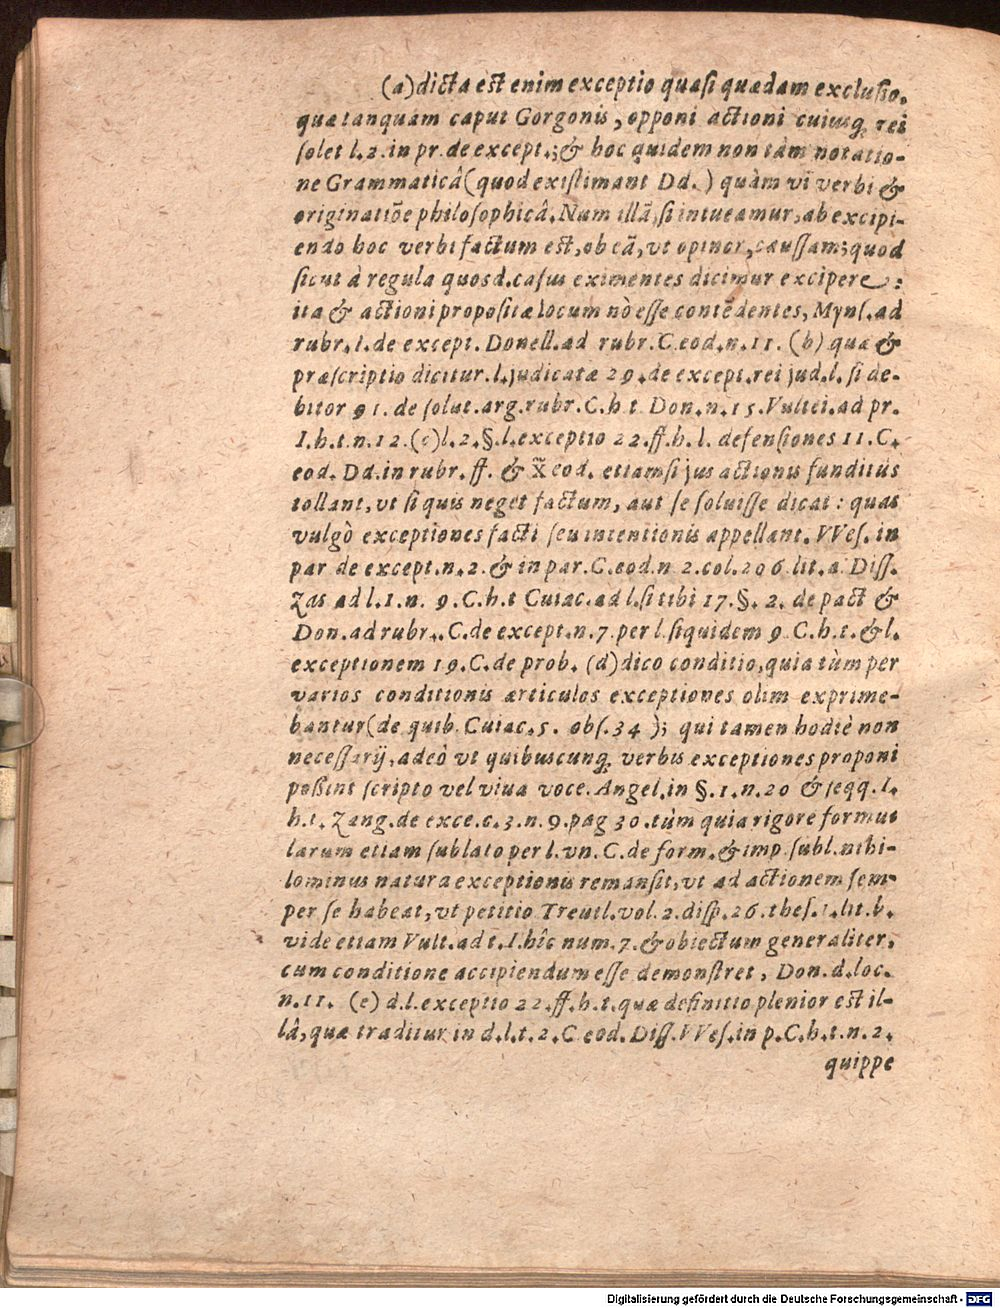 (a)dicta est enim exceptio quasi quædam exclusio,
quæ tanquam caput Gorgonis, opponi actioni cuiusq; rei
solet l.2.in pr.de except.;& hoc quidem non tàm notatio-
ne Grammaticâ(quod existimant Dd.) quàm vi verbi &
originatiōe philosophicâ.Nam illā,si intueamur,ab excipi-
endo hoc verbi factum est,ob eā,vt opinor,caussam;quod
sicut à regula quosd.casus eximentes dicimur excipere:
ita & actioni propositæ locum nō esse contēdentes, Myns.ad
rubr.l.de except. Donell.ad rubr.C.eod.n.11. (b) quæ &
præscriptio dicitur.l.judicatæ 29.de except.rei jud.l. si de-
bitor 91. de solut.arg.rubr.C.h.t. Don.n.15.Vultei.ad pr.
I.h.t.n.12.(c)l.2.§.l.exceptio 22.ff.h.l. defensiones 11.C.
eod. Dd.in rubr.ff. & X̄ eod. etiamsi jus actionis funditùs
tollant, vt si quis neget factum, aut se soluisse dicat : quas
vulgò exceptiones facti seu intentionis appellant. VVes. in
par de except.n.2.& in par.C.eod.n 2.col.206.lit.a. Diss.
Zas ad l.1.n. 9.C.h.t Cuiac.ad l.si tibi 17.§. 2. de pact &
Don.ad rubr..C.de except.n.7.per l.siquidem 9.C.h.t.& l.
exceptionem 19.C.de prob. (d)dico conditio,quia tùm per
varios conditionis articulos exceptiones olim exprime-
bantur(de quib.Cuiac.5. obs.34 ); qui tamen hodiè non
necessarij,adeò vt quibuscunq; verbis exceptiones proponi
poßint scripto vel viua voce. Angel.in §.1.n.20 & seqq.l.
h.t. Zang.de exce.c.3.n.9.pag 30.tùm quia rigore formus
larum etiam sublato per l.vn.C.de form.& imp.subl.nihi-
lominus natura exceptionis remansit,vt ad actionem sem-
per se habeat,vt petitio Treutl.vol.2.disp.26.thes.1.lit.b.
vide etiam Vult.ad t.I.hîc num.7.& obiectum generaliter,
cum conditione accipiendum esse demonstret, Don.d.loc.
n.11. (e) d.l.exceptio 22.ff.h.t.quæ definitio plenior est il-
lâ,quæ traditur in d.l.t.2.C eod.Diss.VVes.in p.C.h.t.n.2.
quippe
Digitalisierung gefördert durch die Deutsche Forschungsgemeinschaft - DFG